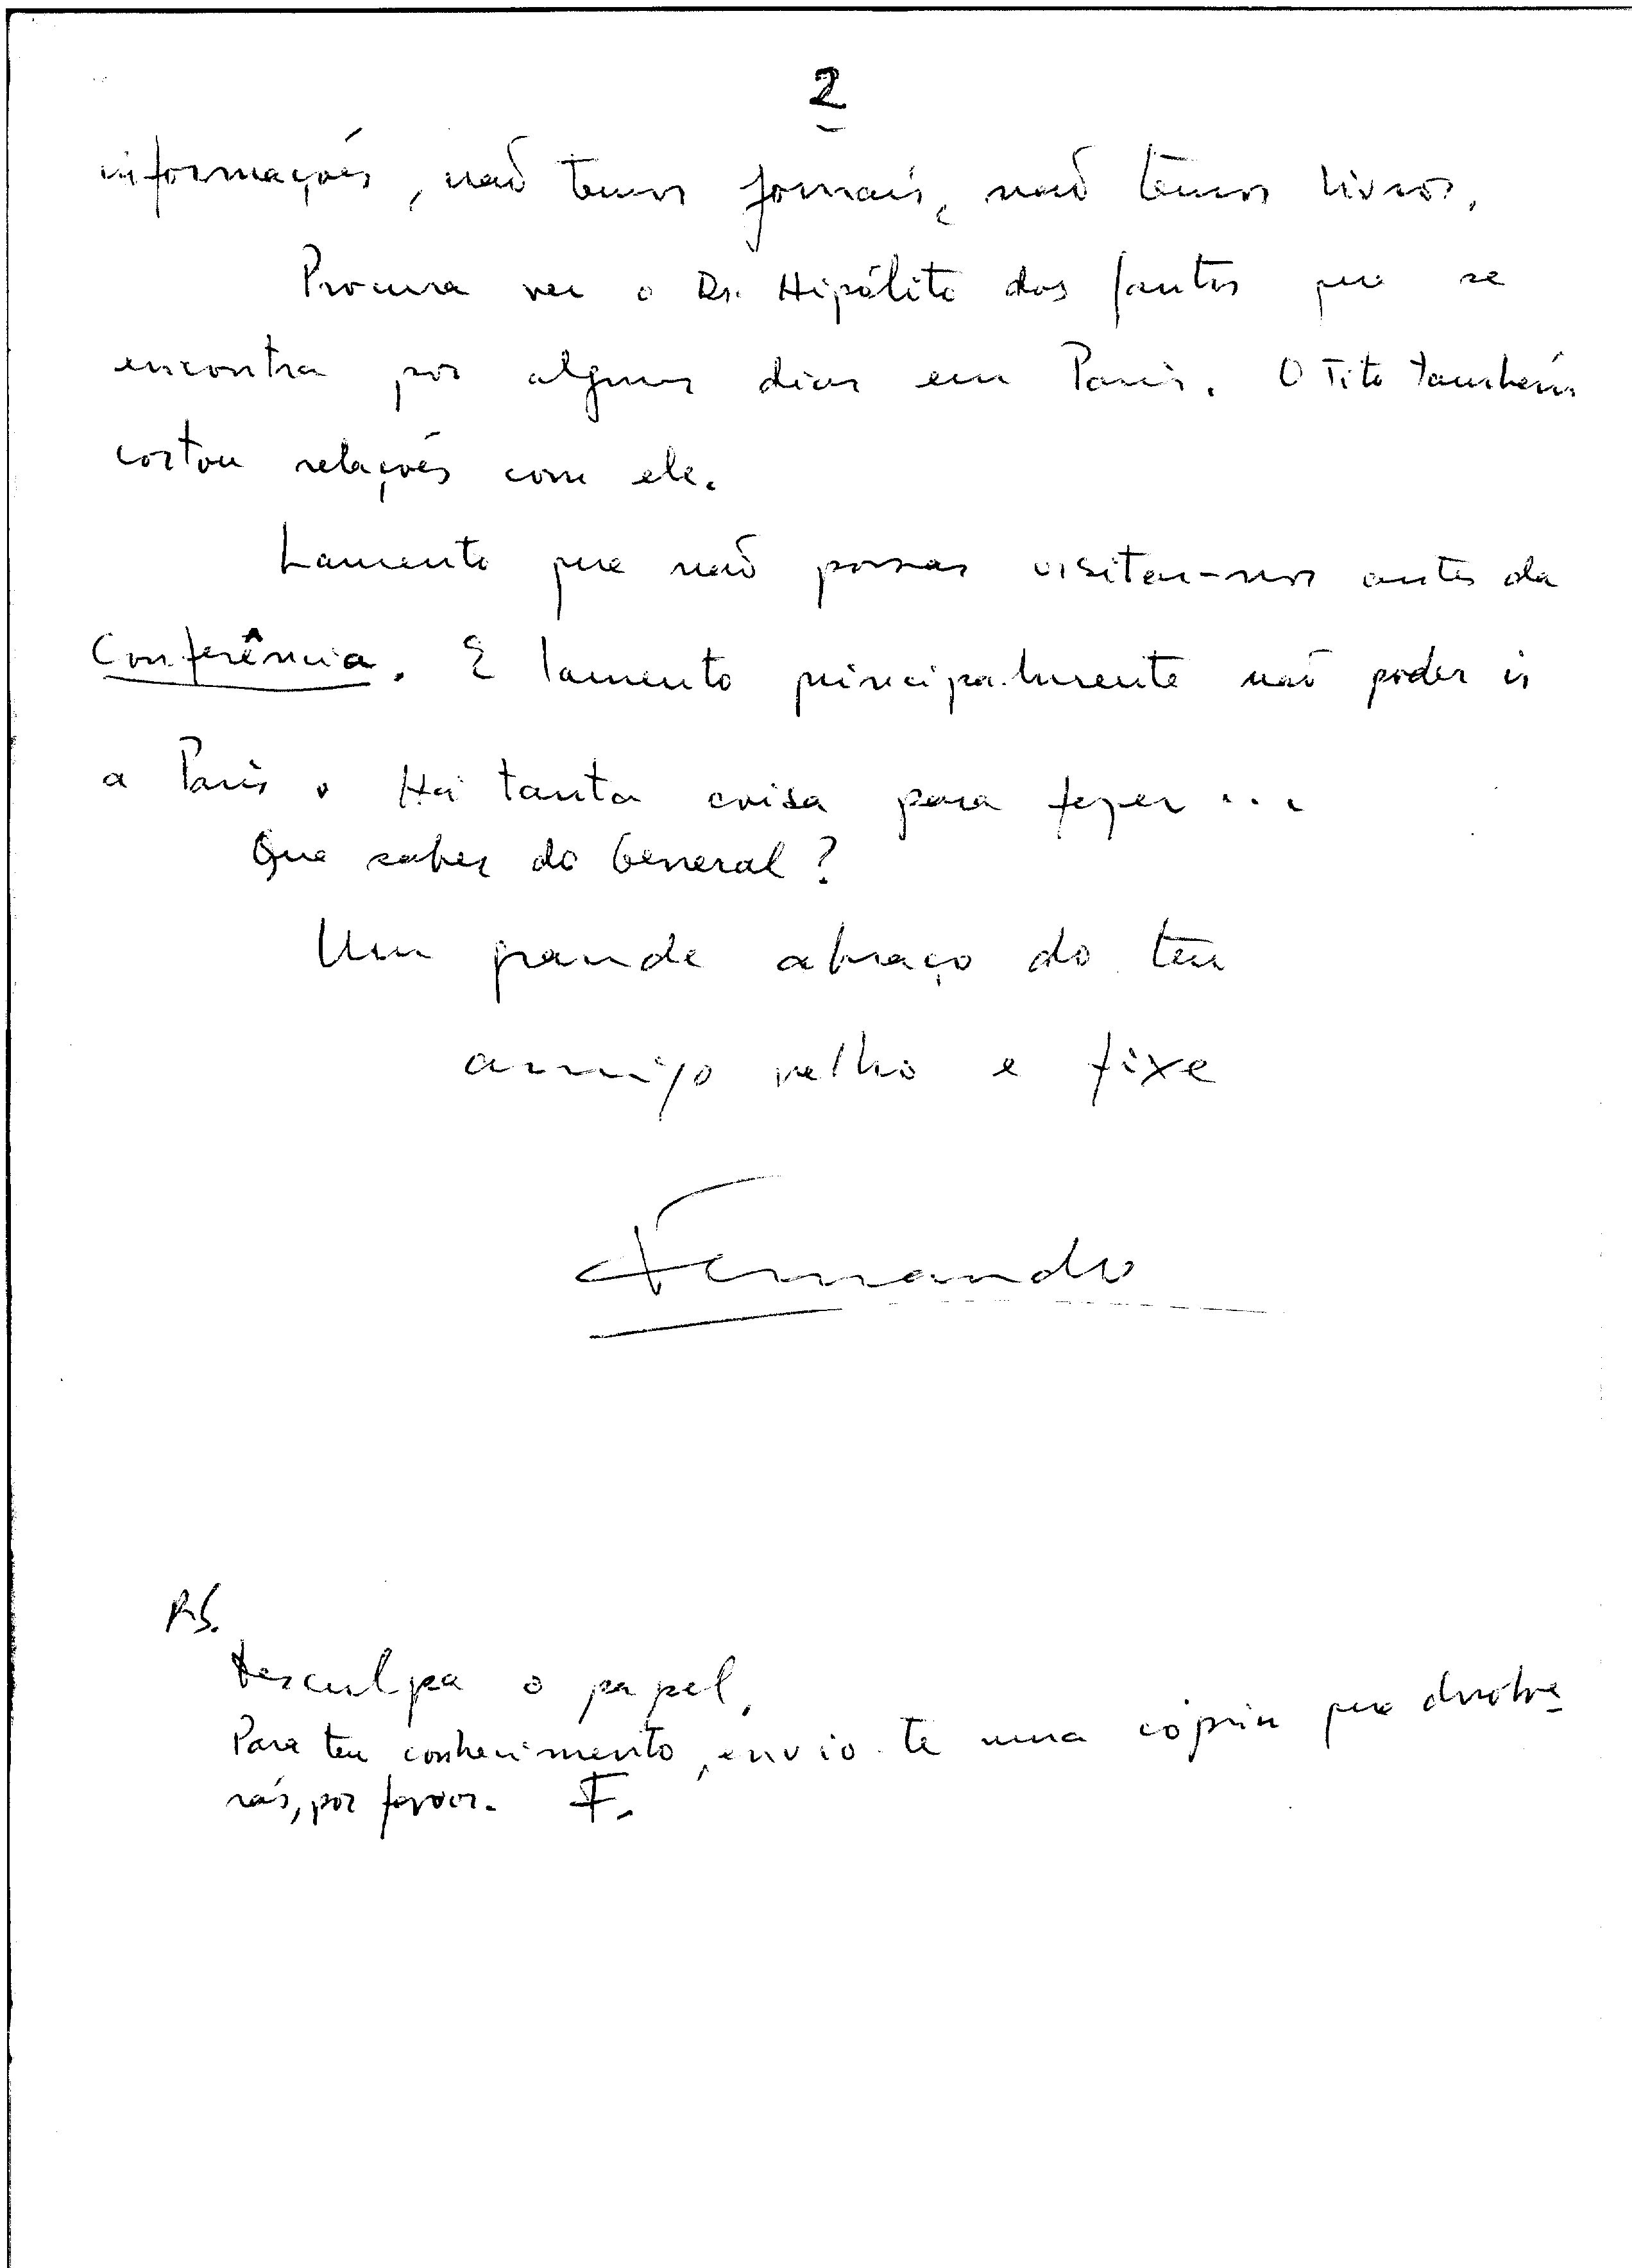 2
informações, não temos jornais, não temos livros.
Procura ver o Dr. Hipólito dos Santos que se
encontra por alguns dias em Paris. O Tito também
cortou relações com ele.
Lamento que não possas visitar-nos antes da
Conferência. E lamento principalmente não poder ir
a Paris. Há tanta coisa para fazer...
Que sabes do General?
Um grande abraço do teu
amigo velho e fixe
Fernando
P.S.
Desculpa o papel.
Para teu conhecimento, envio-te uma cópia que devolve-
rás, por favor. F.